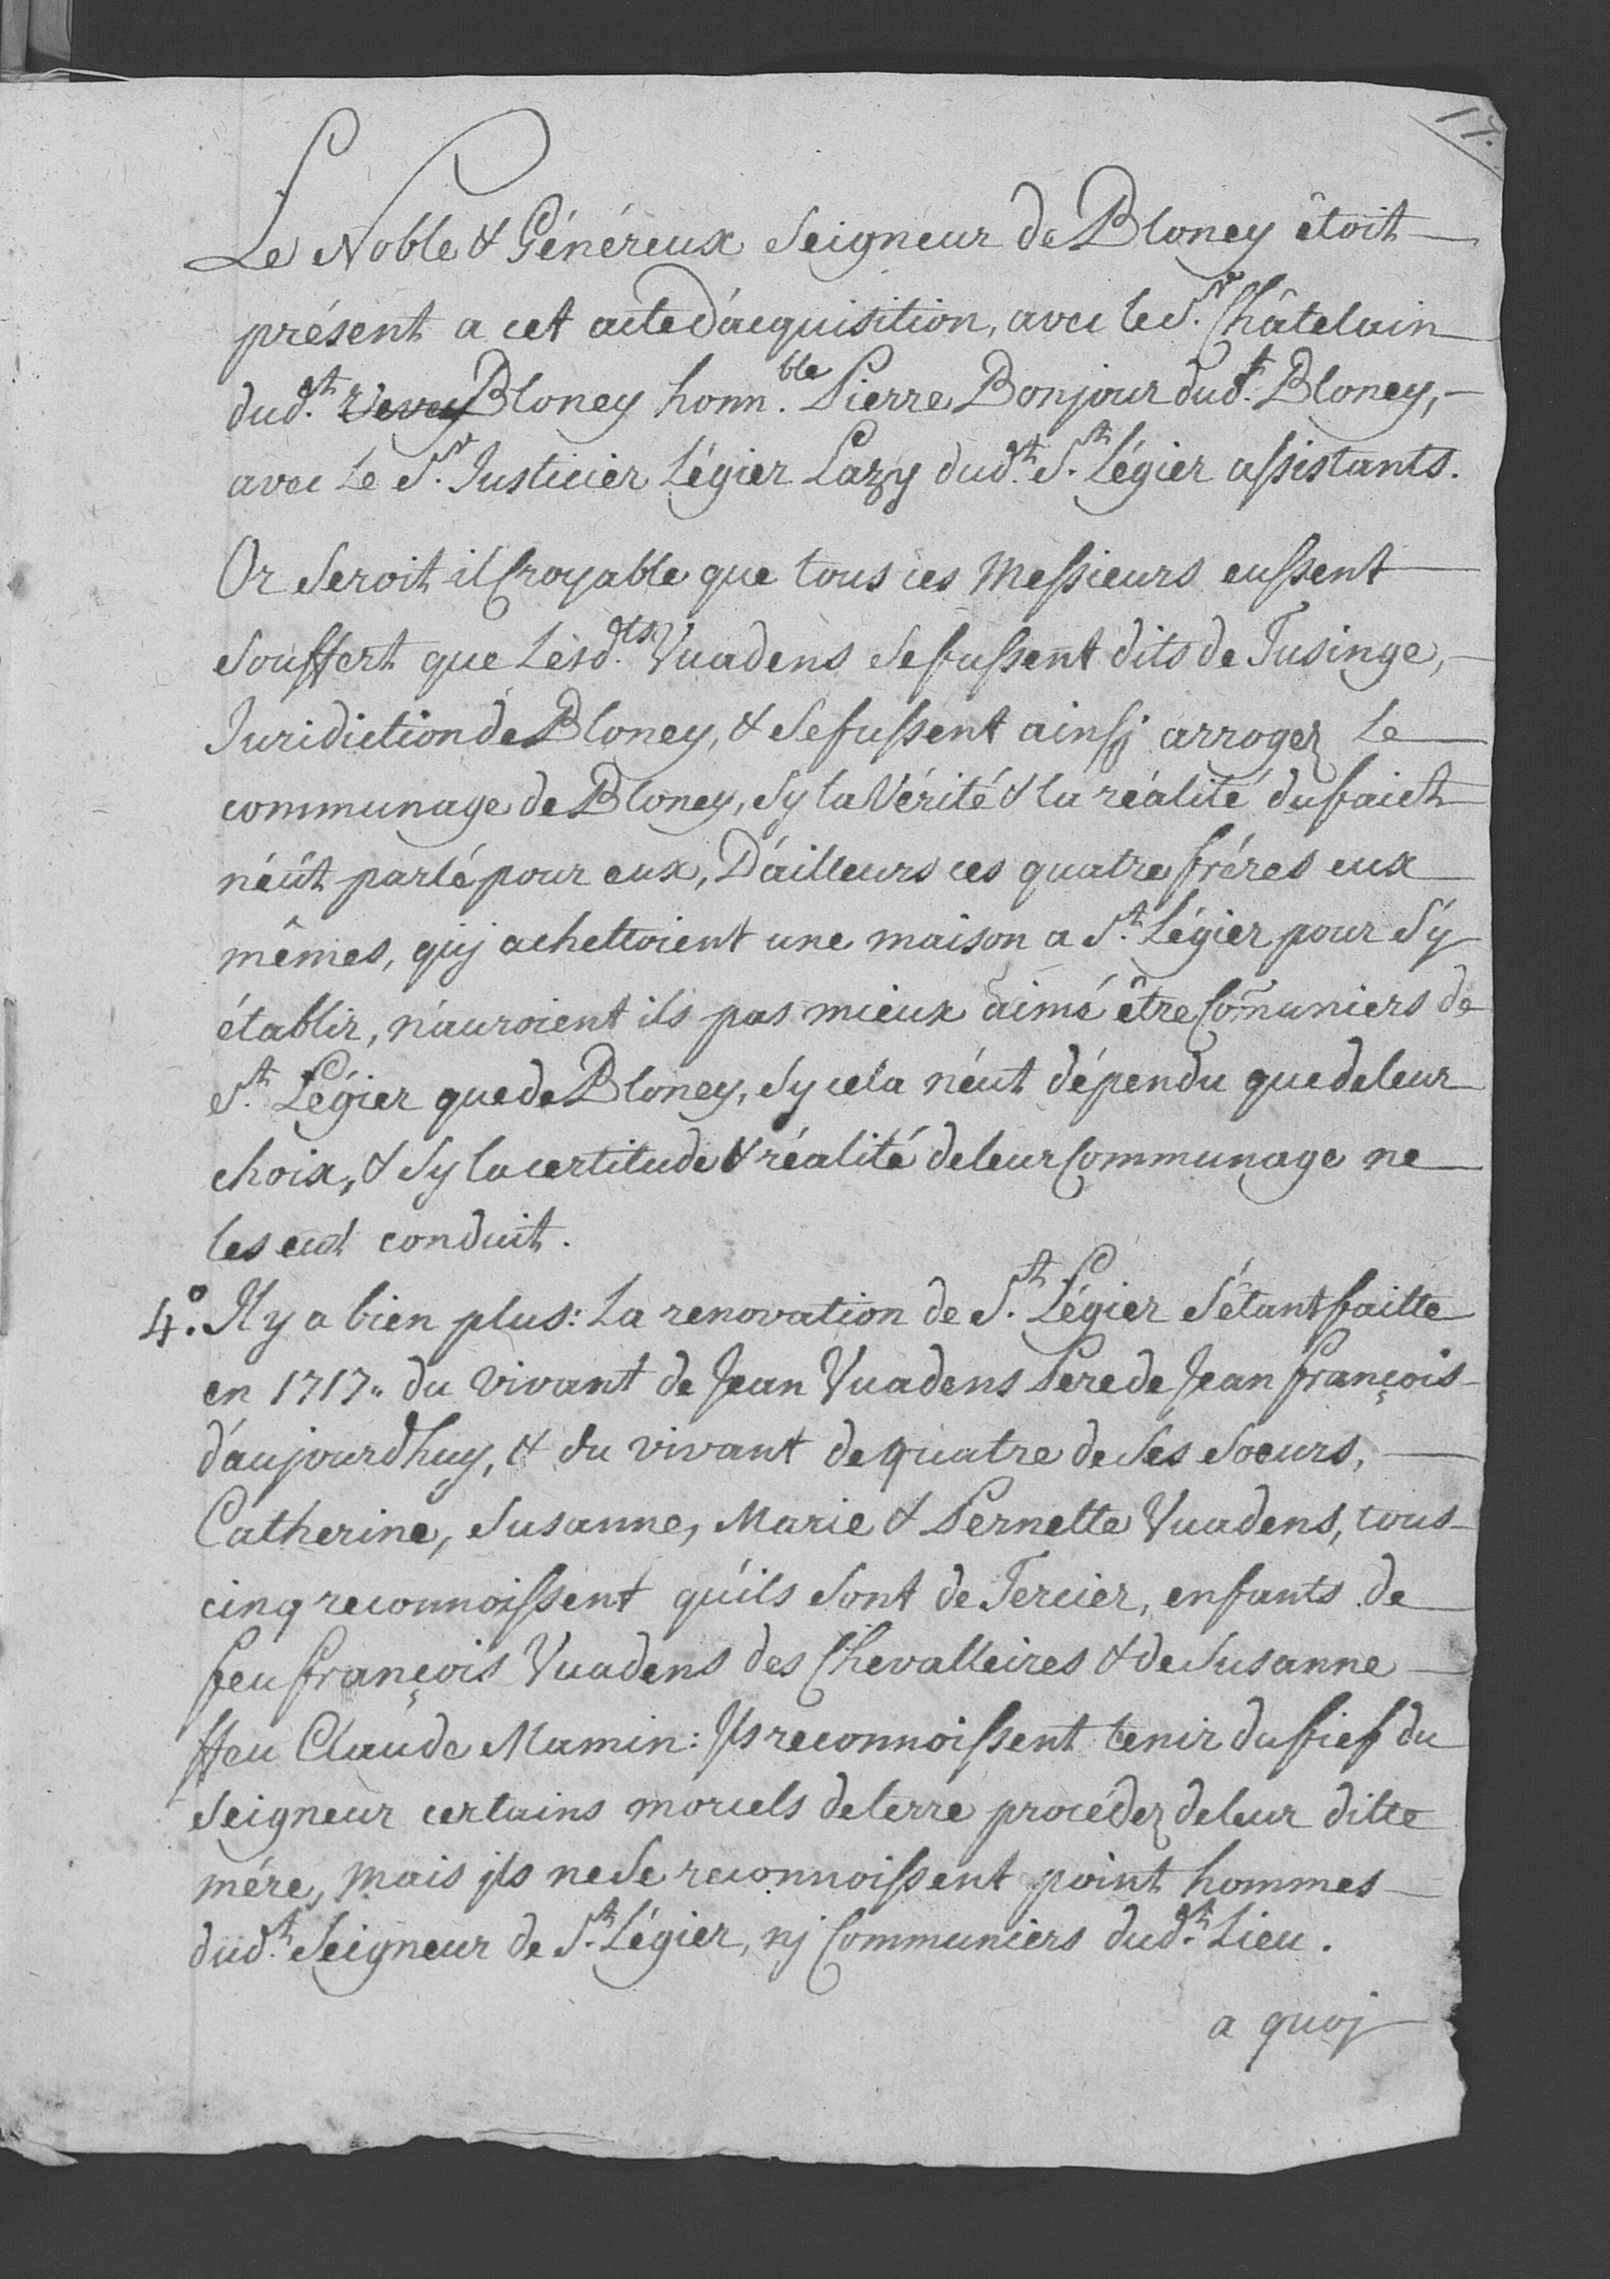 17.
Le Noble & Généreux Seigneur de Bloney êtoit
présent a cet acte d'acquisition, avec le Sr. Châtelain
dud.t Vevey Bloney honn.ble Pierre Bonjour dud.t Bloney,
avec le Sr. Justicier Légier Lazy dud.t St. Légier assistants.
Or Seroit il Croyable que tous ces Messieurs eussent
Souffert que Lesd.ts Vuadens Se fussent dits de Tusinge,
Juridiction de Bloney, & Se fussent ainsj arrogez Le
communage de Bloney, Sy la Vérité & la réalité du faict
n'éût parlé pour eux, D'ailleurs ces quatre fréres eux
mêmes, quj achettoient une maison a St. Légier pour S'y
établir, n'auroient ils pas mieux aimé être Com̃uniers de
St. Légier que de Bloney, Sy cela n'éut dépendu que de leur
choix, & Sy la certitude & réalité de leur Communage ne
les eut conduit.
4.° Il y a bien plus: La renovation de St. Légier S'étant faitte
en 1717. du vivant de Jean Vuadens Pere de Jean françois
d'aujourdhuy, & du vivant de quatre de Ses Soeurs,
Catherine, Susanne, Marie & Pernette Vuadens, tous
cinq reconnoissent qu'ils Sont de Tercier, enfants de
feu françois Vuadens des Chevalleires & de Susanne
ffeu Claude Mamin: Ils reconnoissent tenir du fief du
Seigneur certains morcels de terre procédez de leur ditte
mére, Mais jls ne Se reconnoissent point hommes
dud.t Seigneur de St. Légier, nj Communiers dud.t Lieu.
a quoj